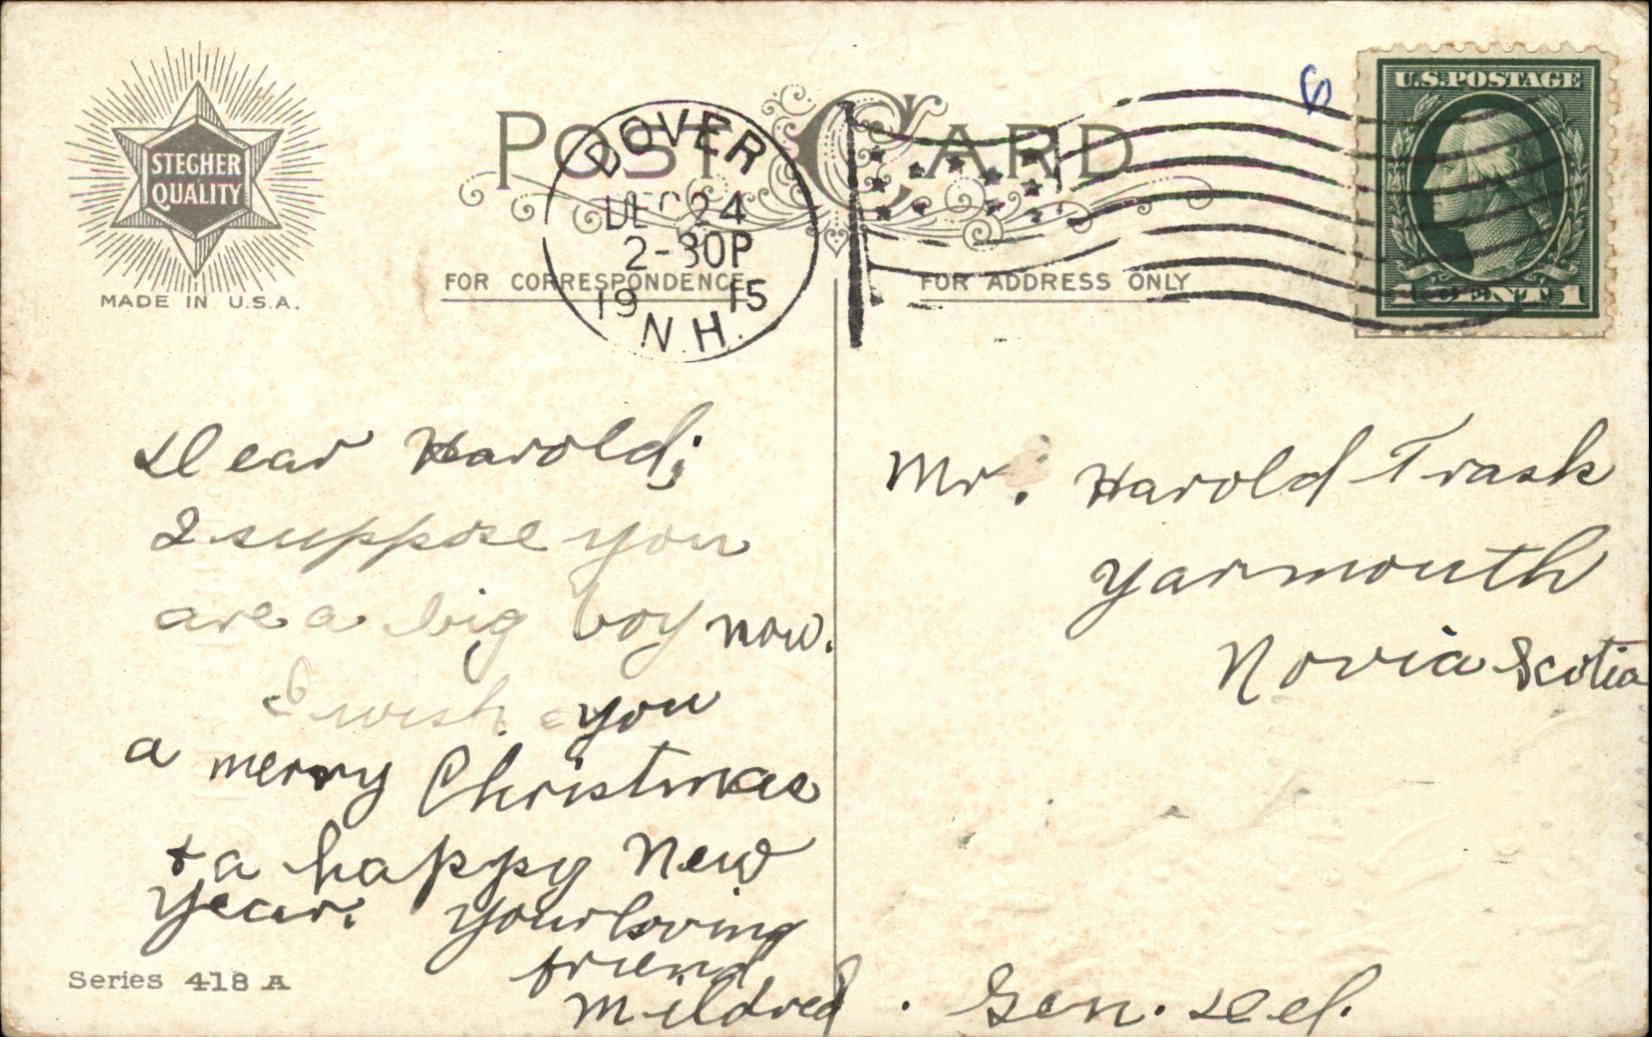 STEGHER
QUALITY
MADE IN U.S.A.
POST CARD
DOVER
DEC 24
2-30P
19 15
N.H.
FOR CORRESPONDENCE
FOR ADDRESS ONLY
6
U.S.POSTAGE
1 CENT 1
Dear Harold;
I suppose you
are a big boy now.
I wish you
a merry Christmas
+ a happy New
Year. Your loving
friend
Mildred.
Series 418 A
Mr. Harold Trask
Yarmouth
Novia Scotia
Gen. Del.